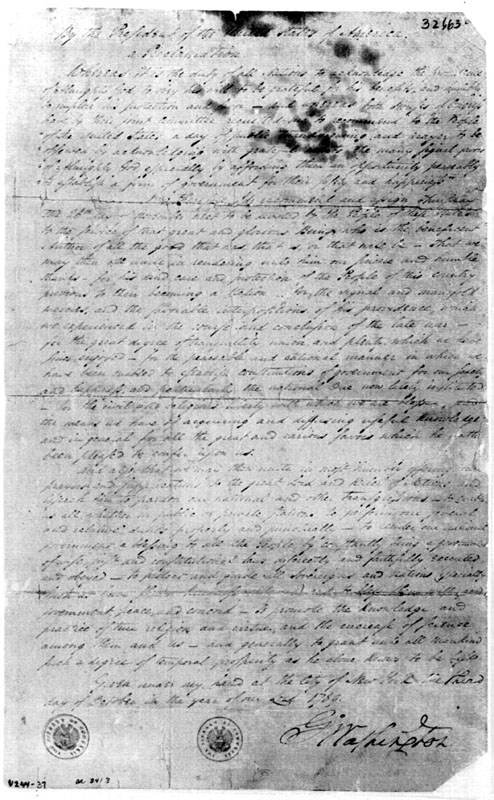 32663
By the President of the United States of America.
a Proclamation.
Whereas it is the duty of all Nations to acknowledge the providence
of Almighty God, to obey his will, to be grateful for his benefits, and humbly
to implore his protection and favor — and whereas both Houses of Congress
have by their joint Committee requested me to recommend to the People
of the United States a day of public thanksgiving and prayer to be
observed by acknowledging with grateful hearts the many signal favors
of Almighty God especially by affording them an opportunity peaceably
to establish a form of government for their safety and happiness.
Now therefore I do recommend and assign Thursday
the 26th day of November next to be devoted by the People of these States
to the service of that great and glorious Being, who is the beneficent
Author of all the good that was, that is, or that will be — That we
may then all unite in rendering unto him our sincere and humble
thanks — for his kind care and protection of the People of this country
previous to their becoming a Nation — for the signal and manifold
mercies, and the favorable interpositions of his providence, which
we experienced in the course and conclusion of the late war —
for the great degree of tranquility, union, and plenty, which we have
since enjoyed — for the peaceable and rational manner in which we
have been enabled to establish constitutions of government for our safety
and happiness, and particularly the national One now lately instituted
— for the civil and religious liberty with which we are blessed, and
the means we have of acquiring and diffusing useful knowledge
and in general for all the great and various favors which he hath
been pleased to confer upon us.
And also that we may then unite in most humbly offering our
prayers and supplications to the great Lord and Ruler of Nations and
beseech him to pardon our national and other transgressions — to enable
us all, whether in public or private stations, to perform our several
and relative duties properly and punctually — to render our national
government a blessing to all the People, by constantly being a government
of wise, just and constitutional laws, discreetly and faithfully executed
and obeyed — to protect and guide all Sovereigns and Nations (especially
such as have shewn kindness unto us) and to bless them with good
government, peace, and concord — To promote the knowledge and
practice of true religion and virtue, and the encrease of science
among them and Us — and generally to grant unto all mankind
such a degree of temporal prosperity as he alone knows to be best.
Given under my hand at the City of New York the third
day of October in the year of our Lord 1789.
Go Washington
4244-37